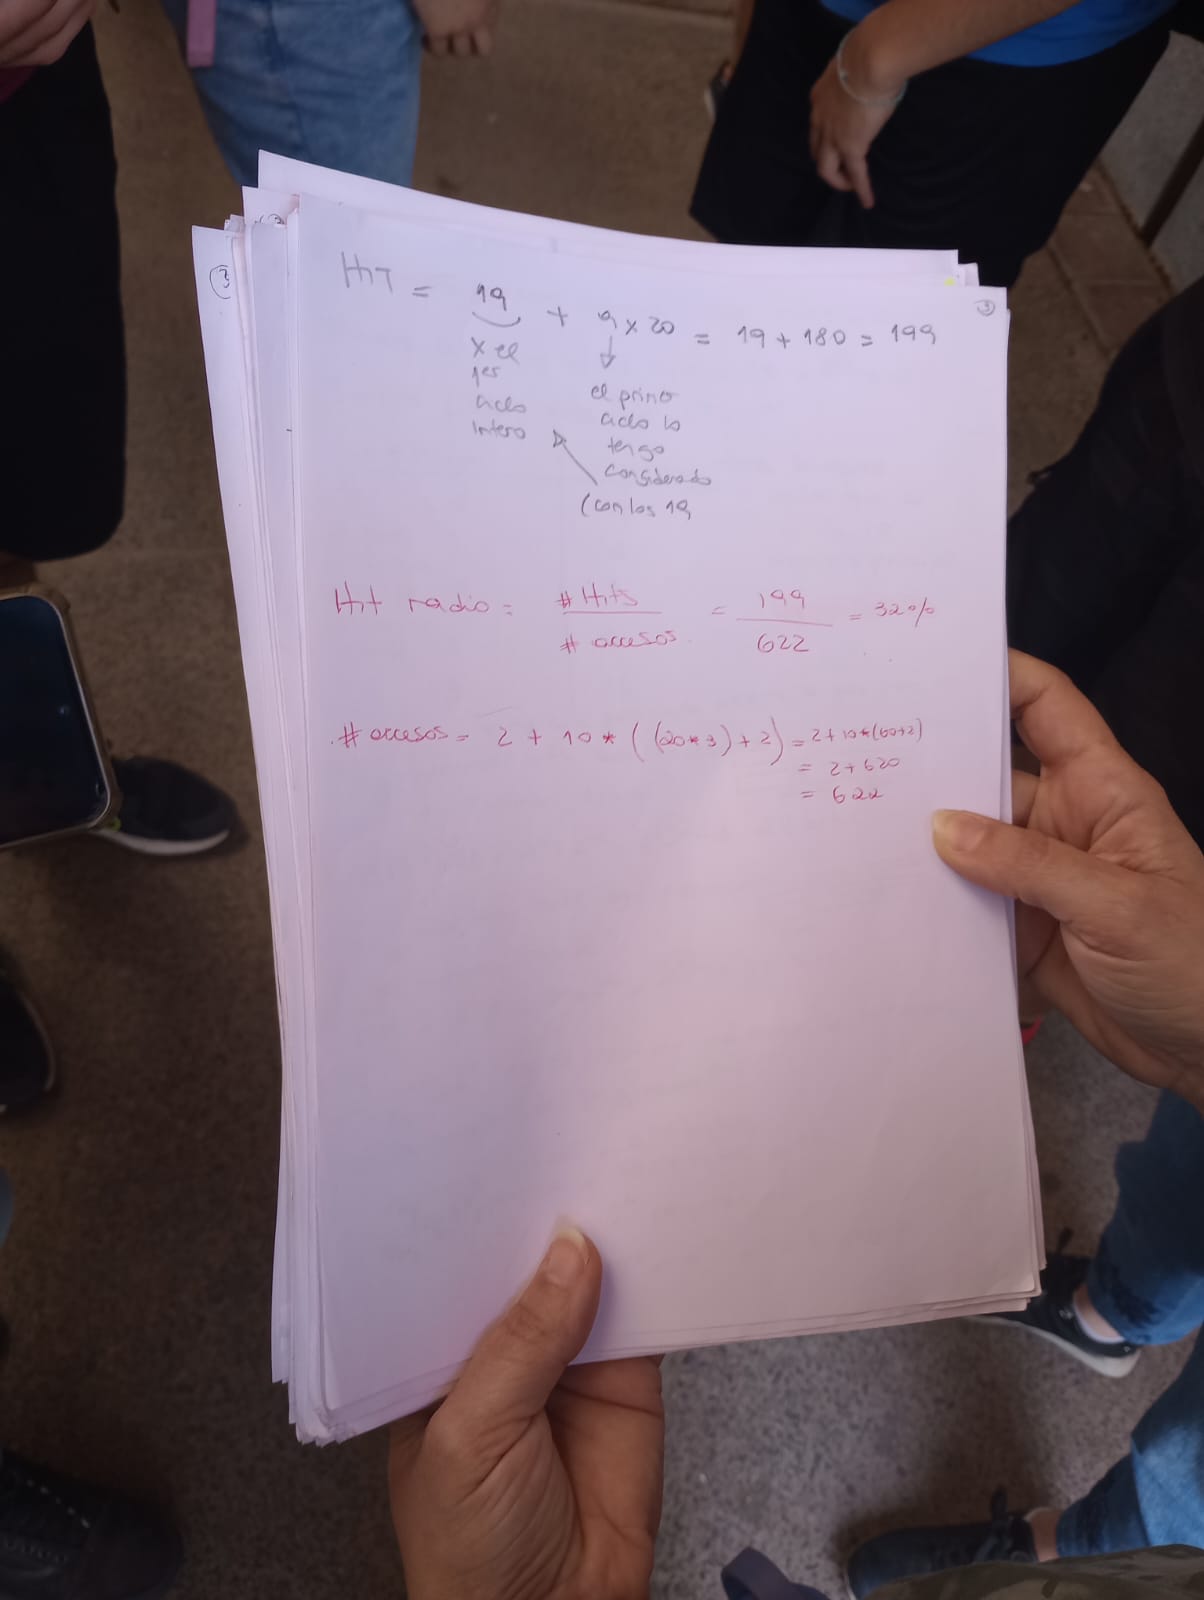 ③
③
HIT = 19 + 9 x 20 = 19 + 180 = 199
x el
1er
ciclo
intero
el primer
ciclo lo
tengo
considerado
(con los 19
Hit radio = # Hits / # accesos = 199 / 622 = 32%
# accesos = 2 + 10 * ((20*3) + 2) = 2 + 10 * (60+2)
= 2 + 620
= 622